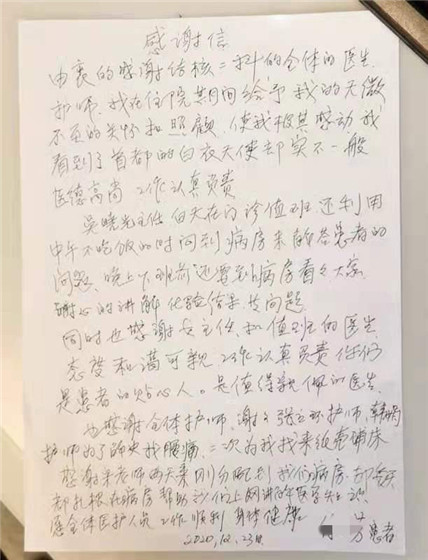 感谢信
由衷的感谢结核二科的全体的医生
护师、我在住院其间给予我的无微
不至的关怀和照顾，使我极其感动，我
看到了首都的白衣天使却实不一般
医德高尚 工作认真负责
吴晓光主任 白天在门诊值班 还利用
中午不吃饭的时间到病房来解答患者的
问题、晚上下班前还要到病房看看大家
耐心的讲解化验结果与问题
同时也感谢主任、和值班的医生
态度和蔼可亲 工作认真负责 你们
是患者的贴心人。是值得敬佩的医生
也感谢全体护师，谢谢张立环护师、
护师为了解决我腰痛，二次为我找来纸壳铺床
感谢老师两天来刚分配到我们病房
却扎根在病房帮助我们上网讲解医学知识
愿全体医护人员 工作顺利 身体健康
患者
2020.12.23日